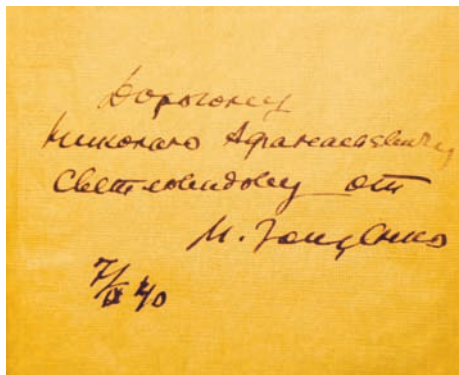 Дорогому
Николаю Афанасьевичу
Световидову от
М. Зощенко
7/IX 40